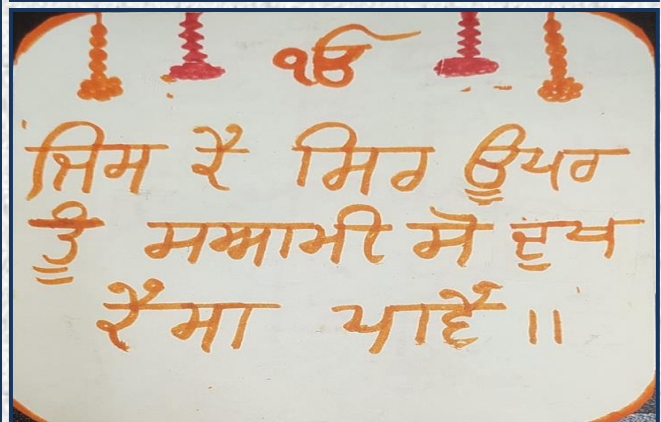 ੴ
ਜਿਸ ਕੈ ਸਿਰ ਊਪਰ
ਤੂੰ ਸਆਮੀ ਸੋ ਦੂਖ
ਕੈਸਾ ਪਾਵੈ ॥